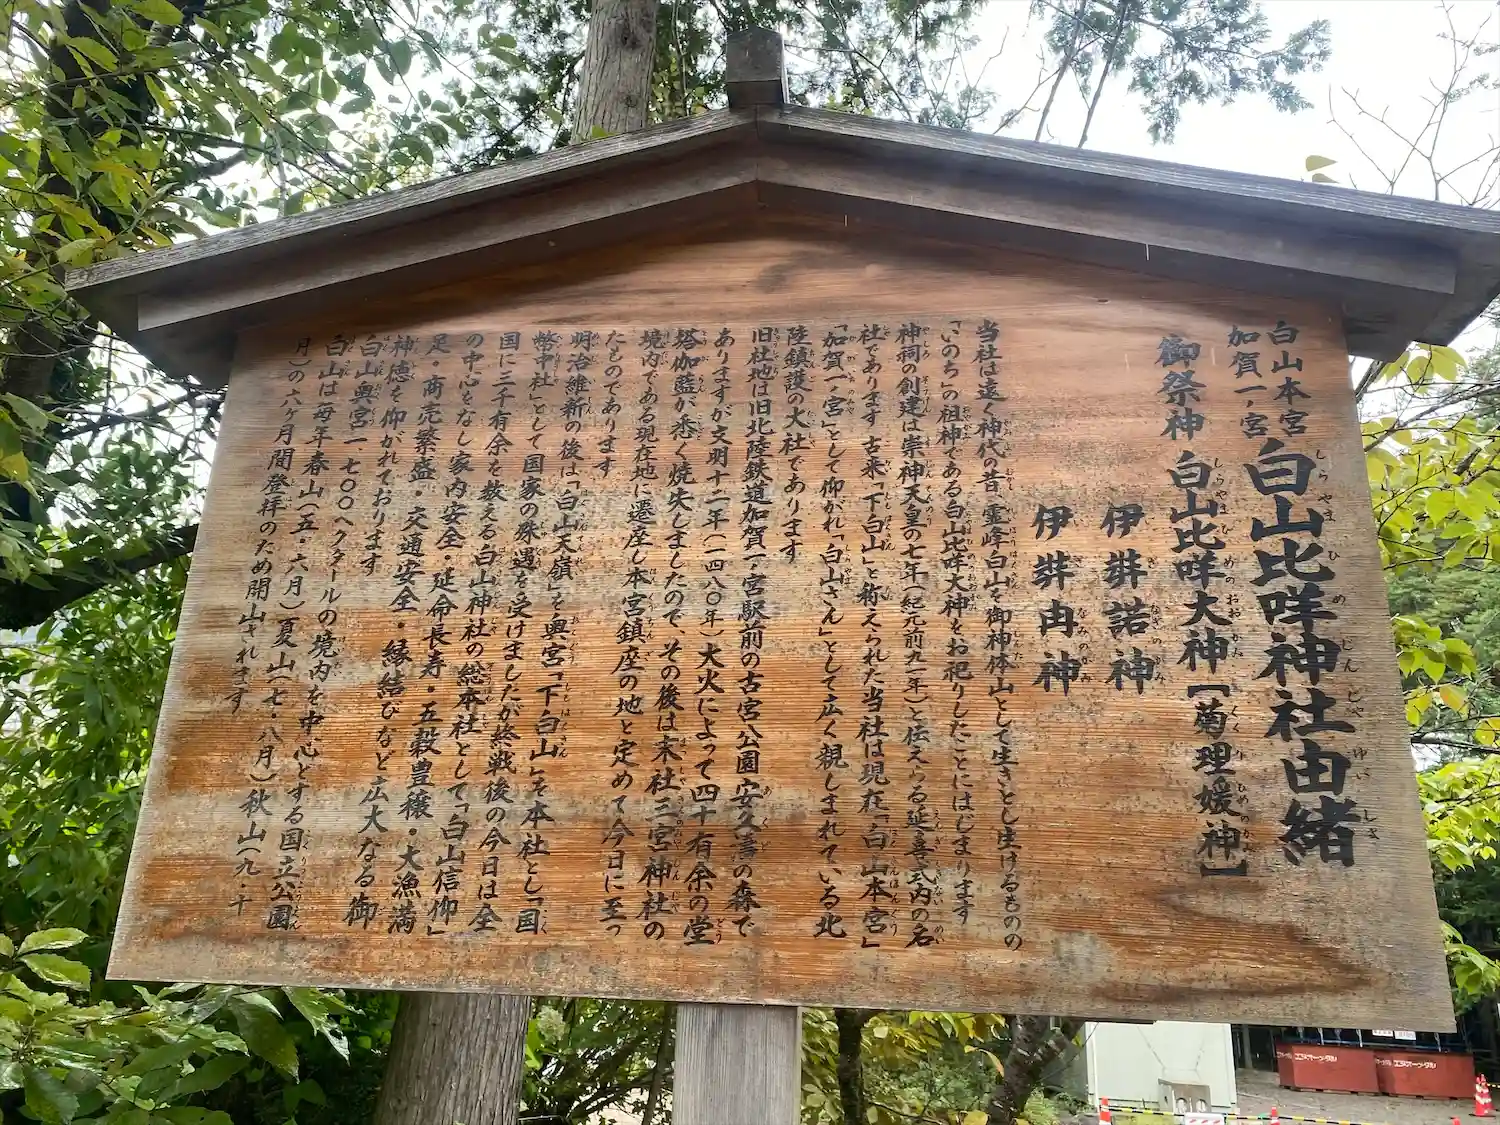 白山本宮
加賀一ノ宮
白山比咩神社由緒
御祭神 白山比咩大神［菊理媛神］
伊弉諾神
伊弉冉神
当社は遠く神代の昔、霊峰白山を御神体山として生きとし生けるものの
「いのち」の祖神である白山比咩大神をお祀りしたことにはじまります
神祠の創建は崇神天皇の七年（紀元前九一年）と伝えらる延喜式内の名
社であります 古来「下白山」と称えられた当社は現在「白山本宮」
「加賀一ノ宮」として仰がれ「白山さん」として広く親しまれている北
陸鎮護の大社であります
旧社地は旧北陸鉄道加賀一ノ宮駅前の古宮公園安久濤の森で
ありますが文明十二年（一四八〇年）大火によって四十有余の堂
塔伽藍が悉く焼失しましたので、その後は末社三宮神社の
境内である現在地に遷座し本宮鎮座の地と定めて今日に至っ
たものであります
明治維新の後は「白山天嶺」を奥宮「下白山」を本社とし「国
幣中社」として国家の殊遇を受けましたが終戦後の今日は全
国に三千有余を数える白山神社の総本社として「白山信仰」
の中心をなし家内安全・延命長寿・五穀豊穣・大漁満
足・商売繁盛・交通安全・縁結びなど広大なる御
神徳を仰がれております
白山奥宮一、七〇〇ヘクタールの境内を中心とする国立公園
白山は毎年春山（五・六月）夏山（七・八月）秋山（九・十
月）の六ヶ月間登拝のため開山されます